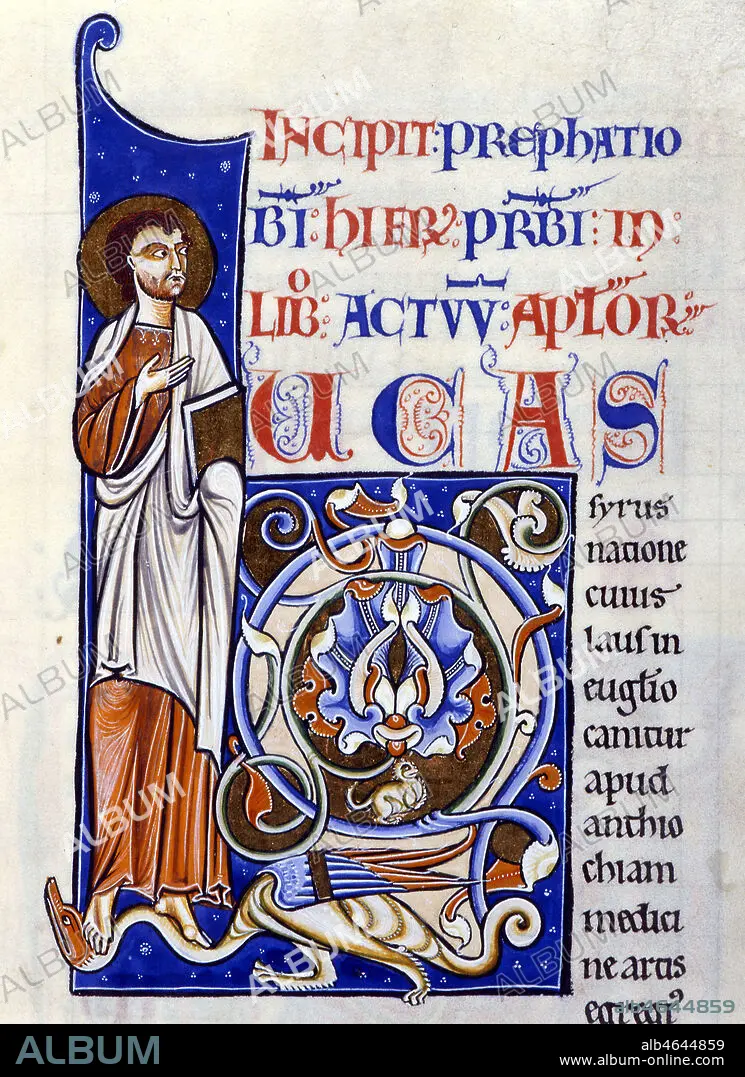 INCIPIT: PREPHATIO
B̄I: HIER: PR̄BI: IN:
LIB: ACTVV̄: APLOR
LUCAS
syrus
natione
cuius
laus in
euglio
canitur
apud
anthio
chiam
medici
ne artis
egregi⁹
ALBUM
alb4644859
www.album-online.com